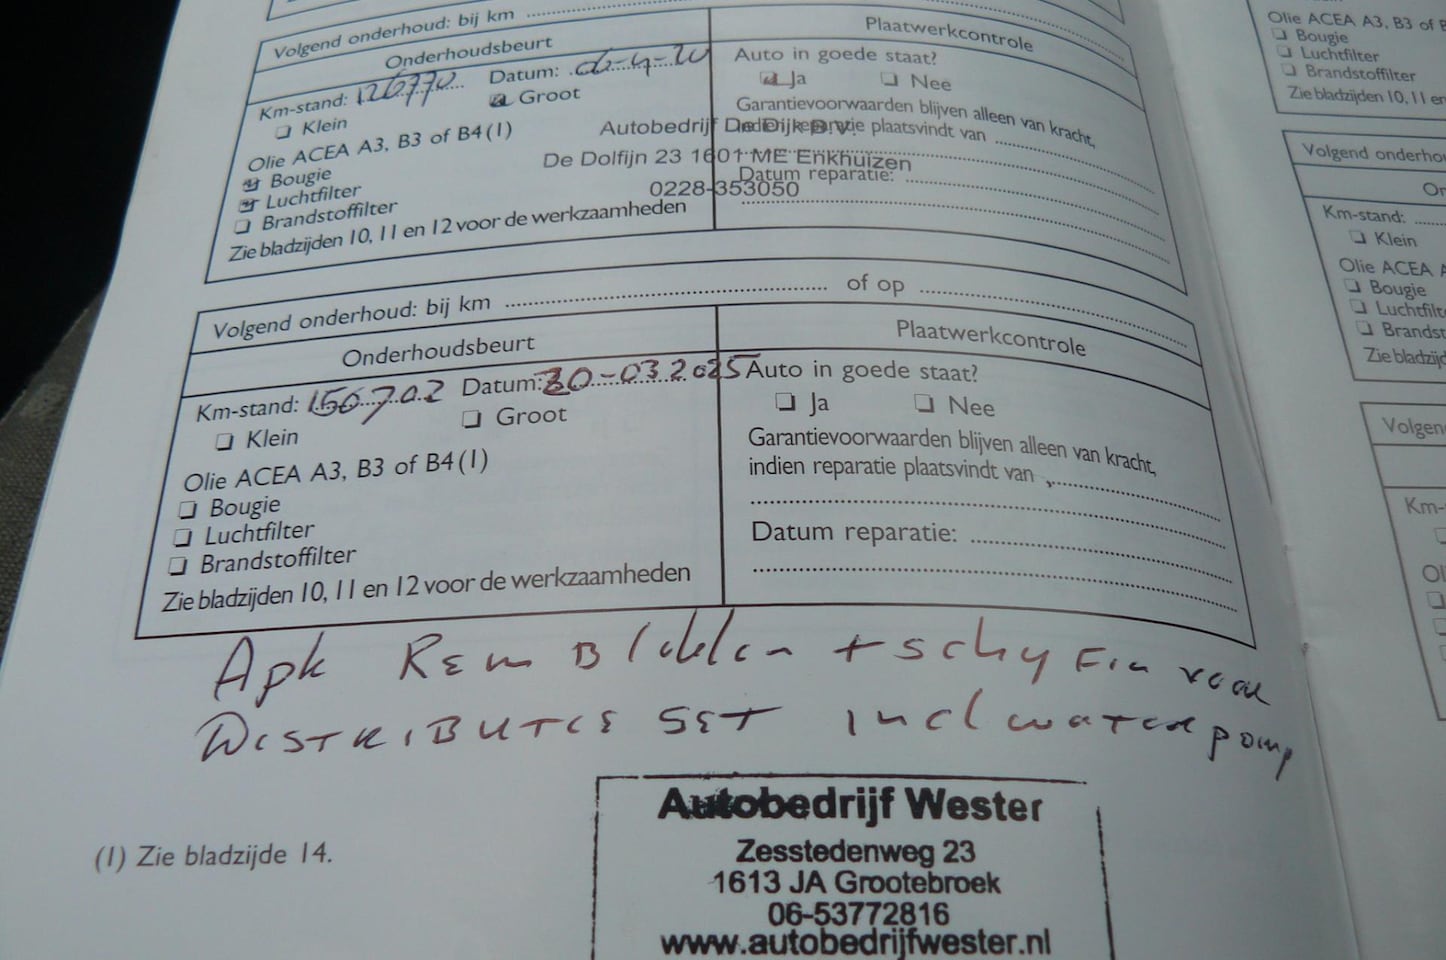 Volgend onderhoud: bij km
Onderhoudsbeurt
Plaatwerkcontrole
Km-stand: 126770 Datum: 06-4-20
Auto in goede staat?
Klein
Groot
Ja
Nee
Olie ACEA A3, B3 of B4(1)
Bougie
Luchtfilter
Brandstoffilter
Zie bladzijden 10, 11 en 12 voor de werkzaamheden
Garantievoorwaarden blijven alleen van kracht,
indien reparatie plaatsvindt van
Datum reparatie:
Autobedrijf De Dijk B.V.
De Dolfijn 23 1601 ME Enkhuizen
0228-353050
Volgend onderhoud: bij km of op
Onderhoudsbeurt
Plaatwerkcontrole
Km-stand: 150702 Datum: 20-03 2025
Auto in goede staat?
Klein
Groot
Ja
Nee
Olie ACEA A3, B3 of B4(1)
Bougie
Luchtfilter
Brandstoffilter
Zie bladzijden 10, 11 en 12 voor de werkzaamheden
Garantievoorwaarden blijven alleen van kracht,
indien reparatie plaatsvindt van
Datum reparatie:
Apk Rem Blokken + schyFen voor
DISTRIBUTIE SET incl waterpomp
(1) Zie bladzijde 14.
Autobedrijf Wester
Zesstedenweg 23
1613 JA Grootebroek
06-53772816
www.autobedrijfwester.nl
Olie ACEA A3, B3 of B
Bougie
Luchtfilter
Brandstoffilter
Zie bladzijden 10, 11 en
Volgend onderho
Km-stand:
Klein
Olie ACEA A
Bougie
Luchtfilt
Brandst
Zie bladzijd
Volgen
Km-